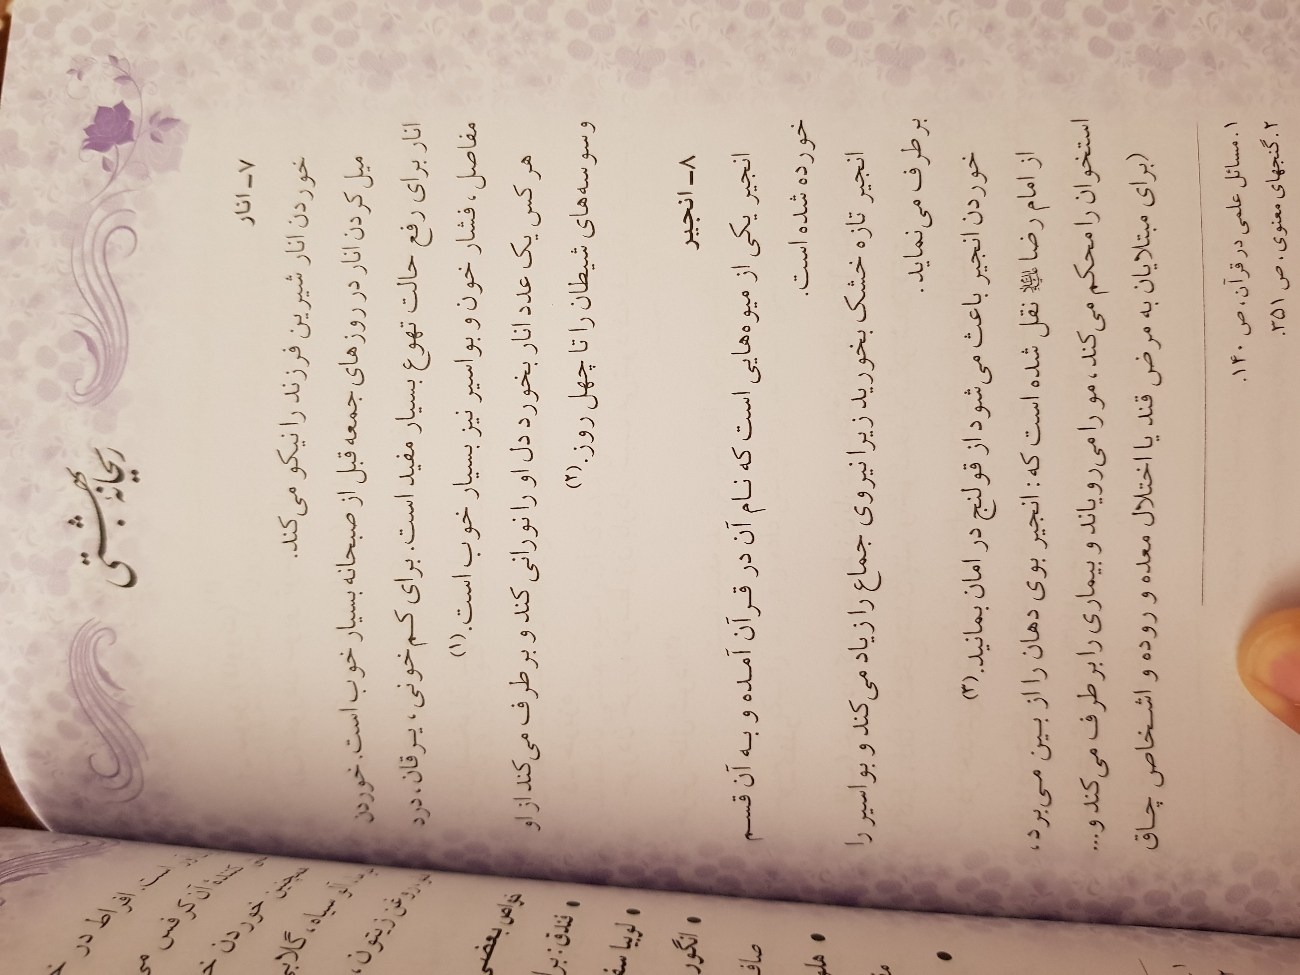 ریحانهٔ بهشتی
۷ـ انار
خوردن انار شیرین فرزند را نیکو می‌کند.
میل کردن انار در روزهای جمعه قبل از صبحانه بسیار خوب است. خوردن
انار برای رفع حالت تهوع بسیار مفید است. برای کم خونی، یرقان، درد
مفاصل، فشار خون و بواسیر نیز بسیار خوب است.(۱)
هر کس یک عدد انار بخورد دل او را نورانی کند و برطرف می‌کند از او
وسوسه‌های شیطان را تا چهل روز.(۲)
۸ـ انجیر
انجیر یکی از میوه‌هایی است که نام آن در قرآن آمده و به آن قسم
خورده شده است.
انجیر تازه خشک بخورید زیرا نیروی جماع را زیاد می‌کند و بواسیر را
برطرف می‌نماید.
خوردن انجیر باعث می‌شود از قولنج در امان بمانید.(۳)
از امام رضا علیه السلام نقل شده است که: انجیر بوی دهان را از بین می‌برد،
استخوان را محکم می‌کند، مو را می‌رویاند و بیماری را برطرف می‌کند و...
(برای مبتلایان به مرض قند یا اختلال معده و روده و اشخاص چاق
۱. مسائل علمی در قرآن، ص ۱۴۰.
۲. گنجهای معنوی، ص ۳۵۱.
است. افراط در
کننده آن کرفس
همچنین خوردن
آلو سیاه، گلابی
روغن زیتون،
خواص بعضی
• فندق: برا
• لوبیا سف
• انگور
صاف
• هلو